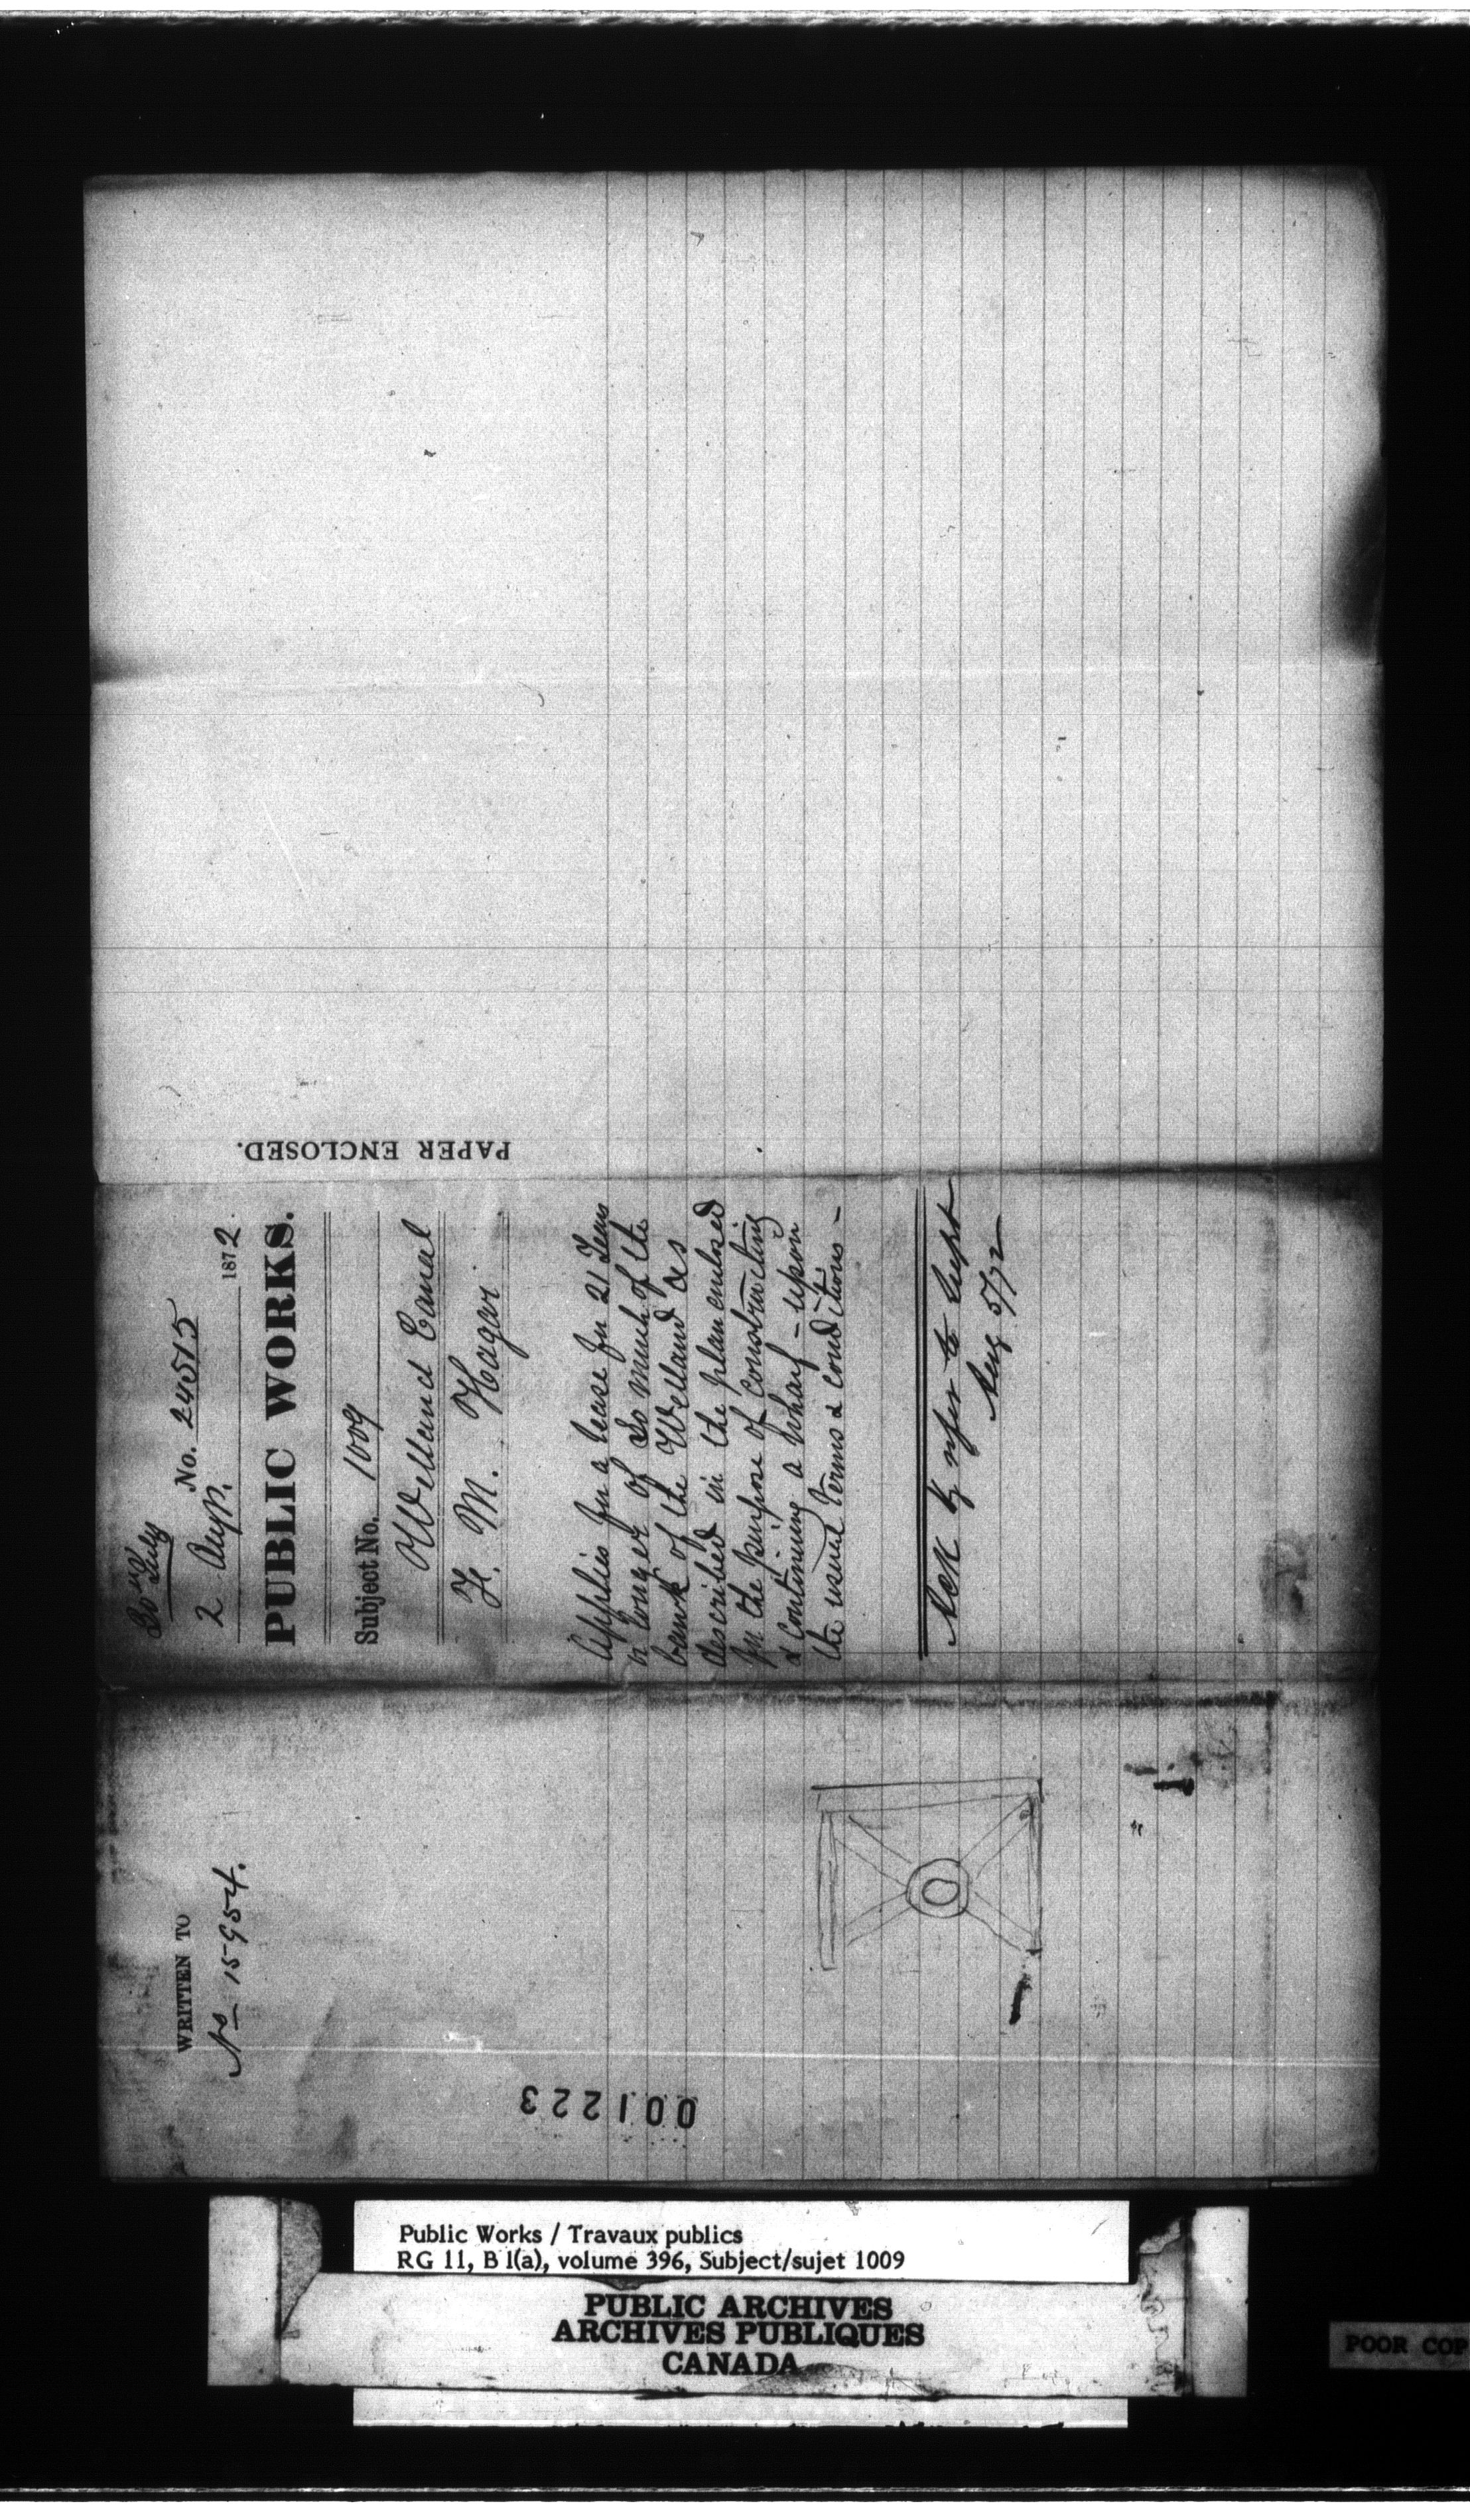 30th July
No. 24515
2 Aug. 1872
PUBLIC WORKS.
Subject No. 1009
Welland Canal
F. M. Hagar
Applies for a lease for 21 Years
or longer of so much of the
bank of the Welland as
described in the plan enclosed
for the purpose of constructing
& continuing a Wharf – upon
the usual terms & conditions –
Ack & refer to Supt
Aug 5/72
PAPER ENCLOSED.
WRITTEN TO
No 15954.
001223
Public Works / Travaux publics
RG 11, B 1(a), volume 396, Subject/sujet 1009
PUBLIC ARCHIVES
ARCHIVES PUBLIQUES
CANADA
POOR COP